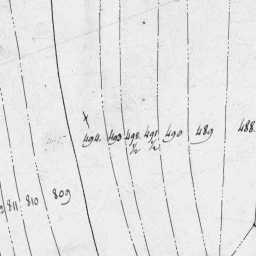 494. 493 492 491 490 489 488.
811 810 809